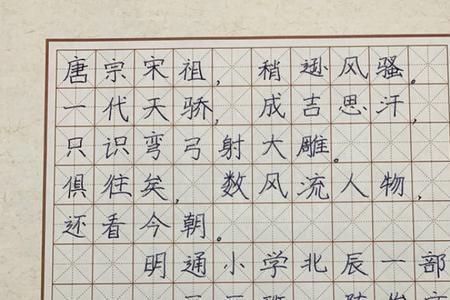 唐宗宋祖，稍逊风骚。
一代天骄，成吉思汗，
只识弯弓射大雕。
俱往矣，数风流人物，
还看今朝。
明通小学北辰一部